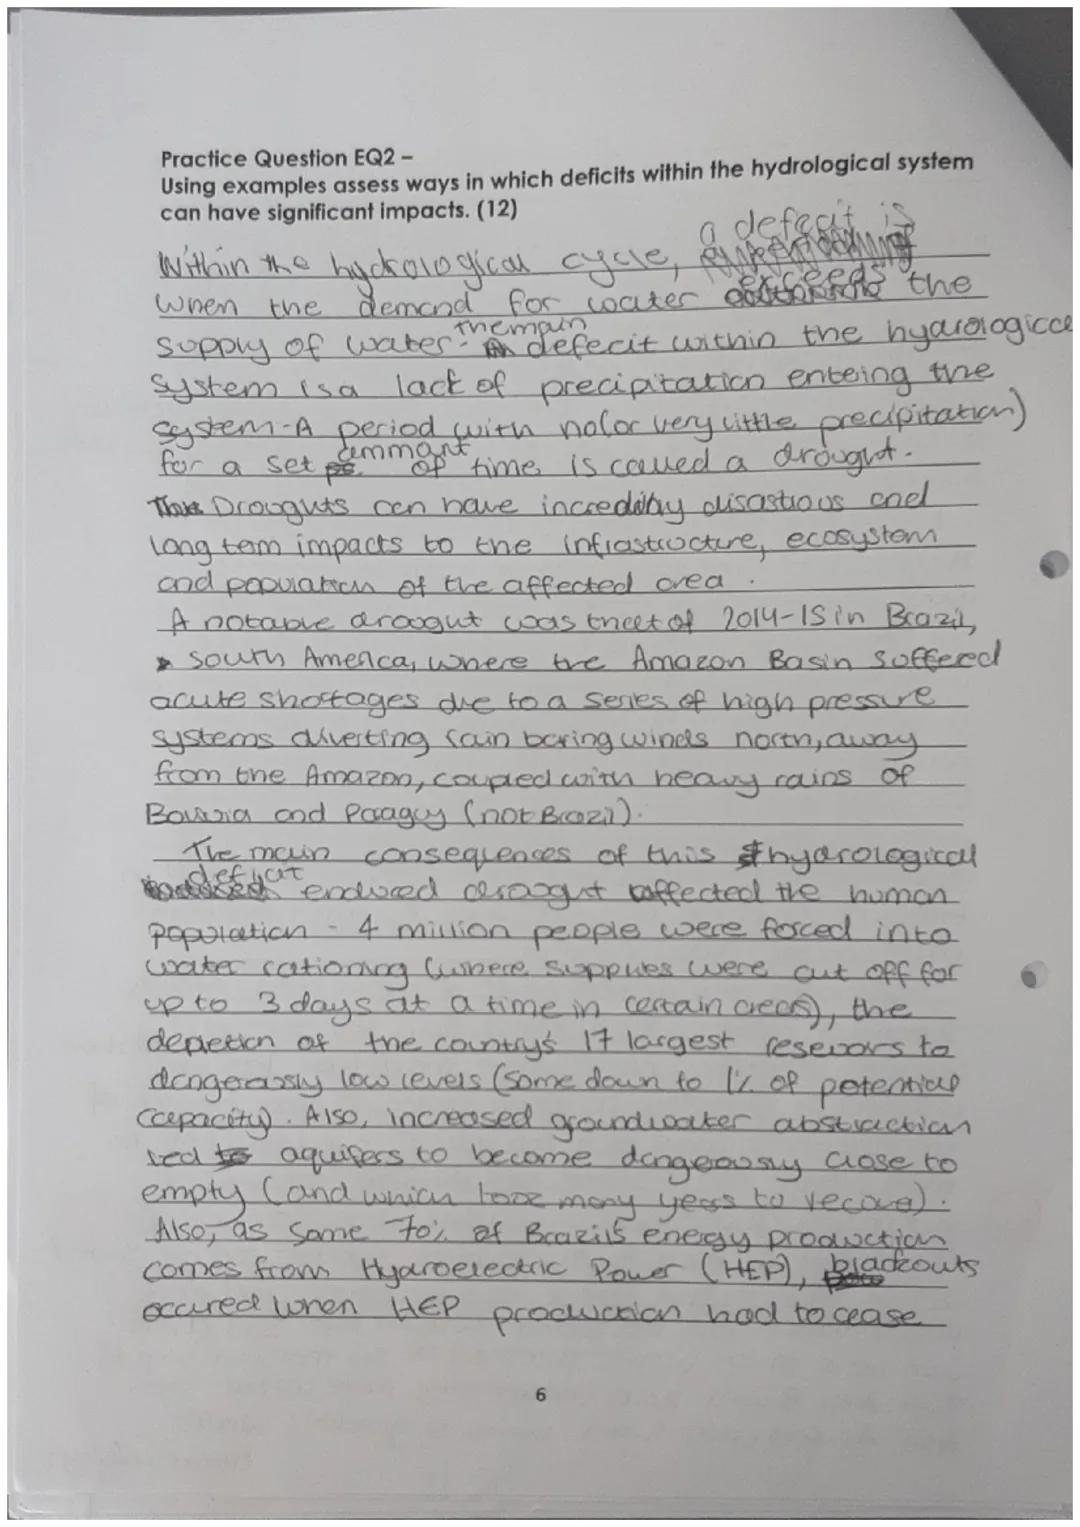 Practice Question EQ2 –
Using examples assess ways in which deficits within the hydrological system
can have significant impacts. (12)
a defecit is
Within the hydrological cycle,
when the demand for water exceeds the
supply of water. The main defecit within the hydrological
system is a lack of precipitation enteing the
system - A period with no (or very little precipitation)
for a set ammont of time is called a drought.
Droughts can have incredibly disastrous and
long term impacts to the infrastructure, ecosystem
and population of the affected area.
A notable drought was that of 2014-15 in Brazil,
South America, where the Amazon Basin suffered
acute shortages due to a series of high pressure
systems diverting rain baring winds north, away
from the Amazon, coupled with heavy rains of
Bolivia and Paaguy (not Brazil).
The main consequences of this hydrological
deficit endured drought affected the human
population - 4 million people were forced into
water rationing (where supplies were cut off for
up to 3 days at a time in certain areas), the
depletion of the country's 17 largest resevoirs to
dangerously low levels (some down to 1% of potential
capacity). Also, increased groundwater abstraction
led aquifers to become dangerously close to
empty (and which take many years to recover).
Also, as some 70% of Brazil's energy production
comes from Hydroelectric Power (HEP), blackouts
occured when HEP production had to cease
6